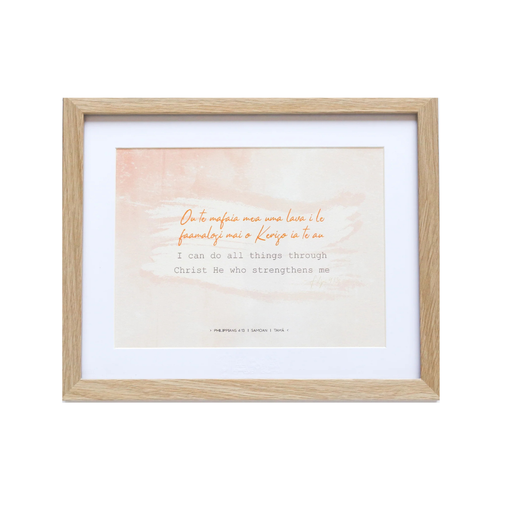 Ou te mafaia mea uma lava i le
faamalosi mai o Keriso ia te au
I can do all things through
Christ He who strengthens me
PHILIPPIANS 4:13 | SAMOAN |